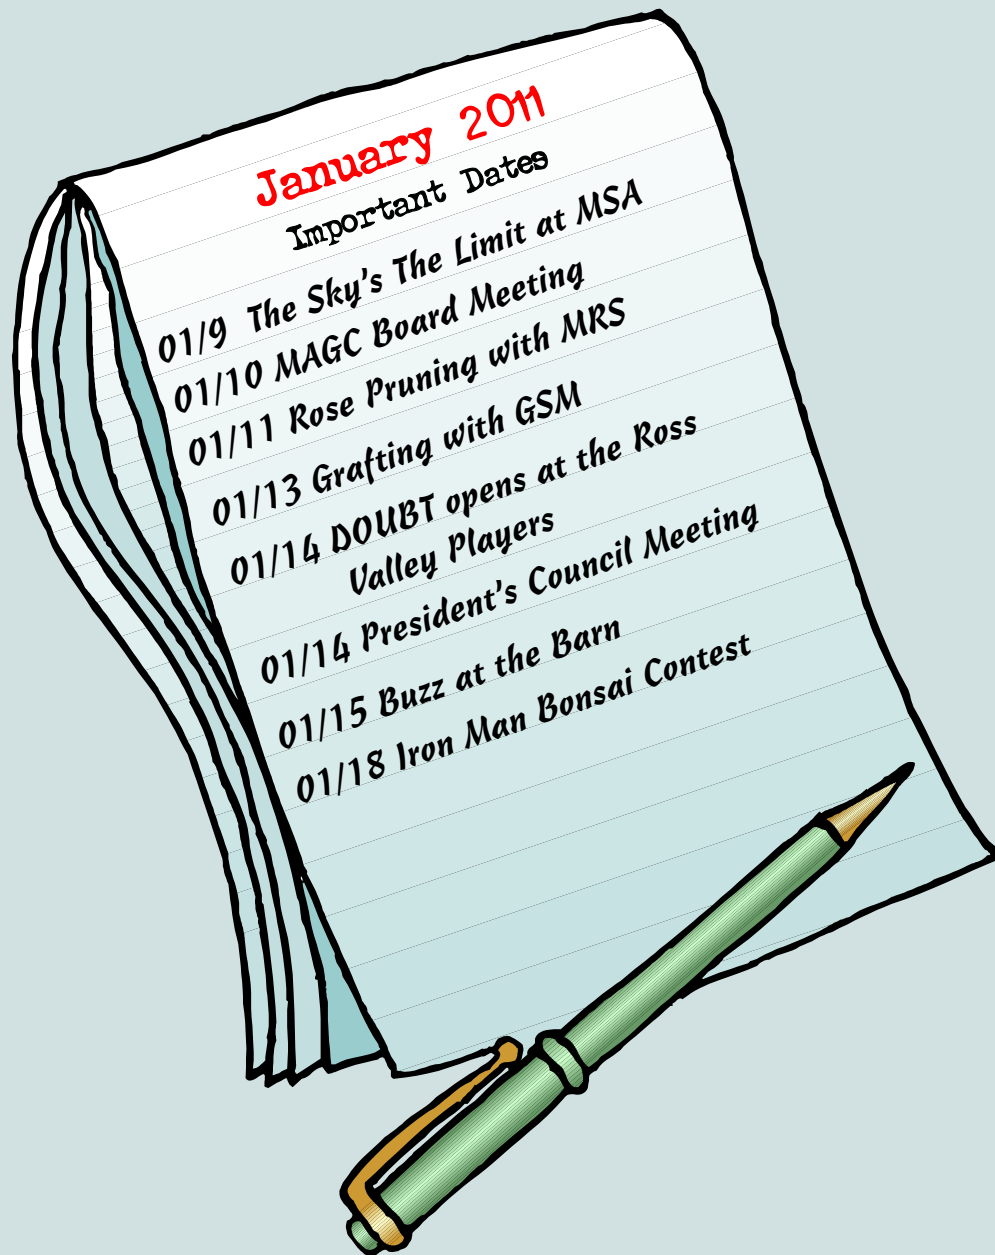 January 2011
Important Dates
01/9 The Sky's The Limit at MSA
01/10 MAGC Board Meeting
01/11 Rose Pruning with MRS
01/13 Grafting with GSM
01/14 DOUBT opens at the Ross
Valley Players
01/14 President's Council Meeting
01/15 Buzz at the Barn
01/18 Iron Man Bonsai Contest